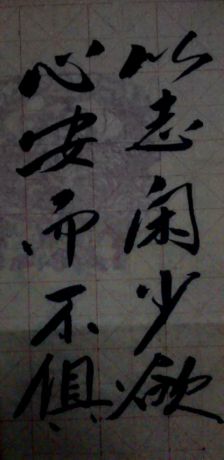 以志闲少欲
心安而不俱